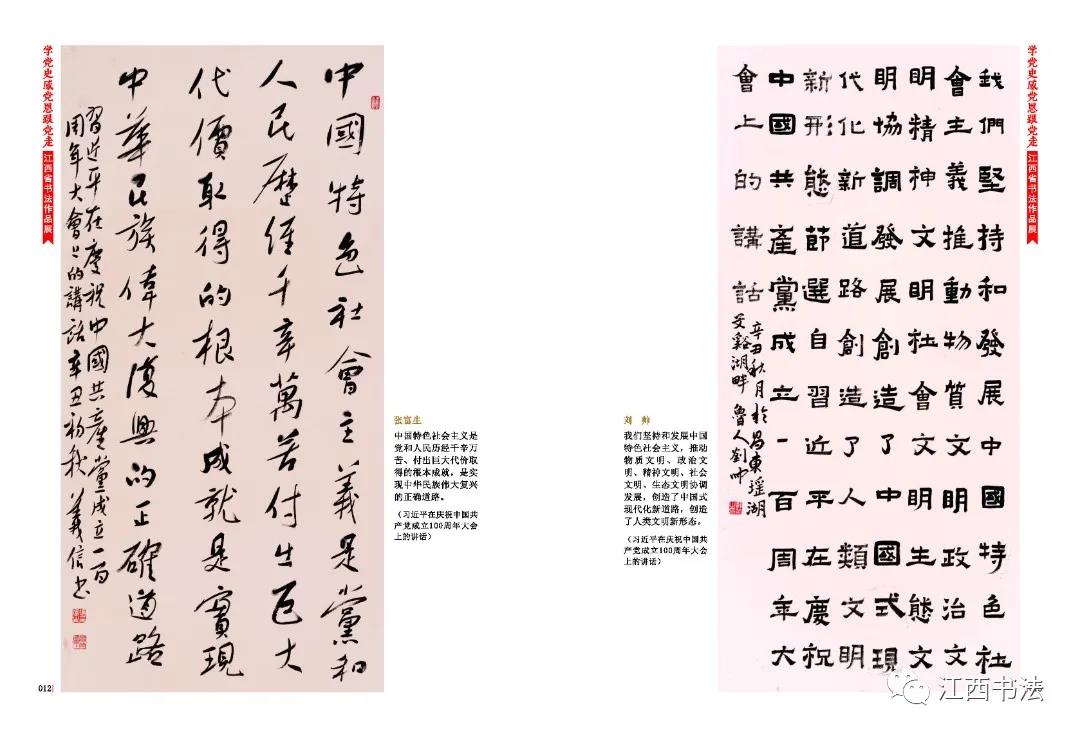 学党史感党恩跟党走
江西省书法作品展
中國特色社會主義是黨和
人民歷經千辛萬苦付出巨大
代價取得的根本成就是實現
中華民族偉大復興的正確道路
習近平在慶祝中國共產黨成立一百
周年大會上的講話辛丑初秋義信书
张富生
中国特色社会主义是
党和人民历经千辛万
苦、付出巨大代价取
得的根本成就，是实
现中华民族伟大复兴
的正确道路。
（习近平在庆祝中国共
产党成立100周年大会
上的讲话）
012
刘 帅
我们坚持和发展中国
特色社会主义，推动
物质文明、政治文
明、精神文明、社会
文明、生态文明协调
发展，创造了中国式
现代化新道路，创造
了人类文明新形态。
（习近平在庆祝中国共
产党成立100周年大会
上的讲话）
我們堅持和發展中國特色社
會主義推動物質文明政治文
明精神文明社會文明生態文
明協調發展創造了中國式現
代化新道路創造了人類文明
新形態節選自習近平在慶祝
中國共產黨成立一百周年大
會上的講話
辛丑秋月於昌東瑤湖
艾谿湖畔魯人劉帥
学党史感党恩跟党走
江西省书法作品展
江西书法